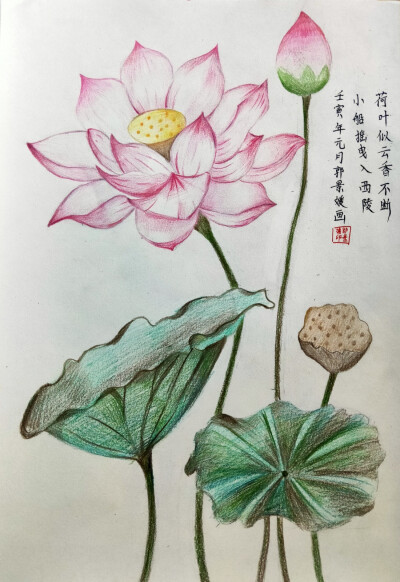 荷叶似云香不断
小船摇曳入西陵
壬寅年元月郭景媛画